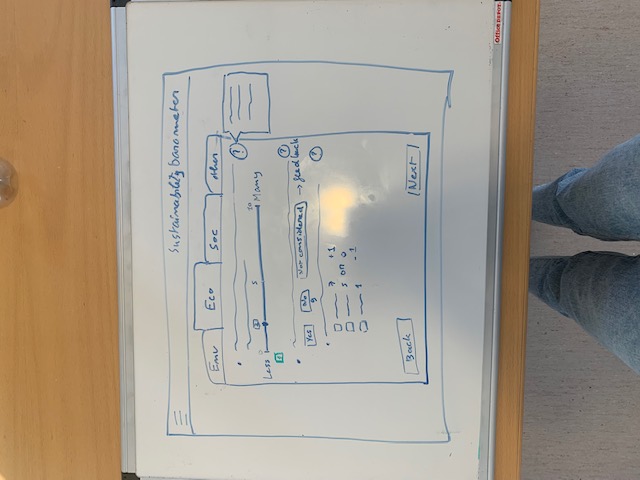 Sustainability barometer
Env Eco Soc other
?
0 3 5 10
Less Many
?
Yes No Not considered → feedback
?
7 +1
5 or 0
1 -1
Back Next
Office DEPOT